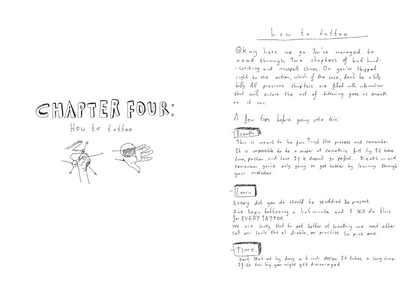 CHAPTER FOUR:
How to tattoo
how to tattoo
Okay here we go. You've managed to
read through two chapters of bad hand-
writing and misspelt
right to the action, which if the case, don't be a silly
billy. All previous chapters are filled with information
that will ensure the act of tattooing goes as smooth
as it can.
A few tips before going into this:
Breathe
This is meant to be fun. Trust the process and remember
It is impossible to be a master at something first try. It takes
time, patience and love. If it doesn't go perfect. Breathe in and
remember you're only going to get better by learning through
your mistakes.
Learn
Every dot you do should be
I've been tattooing a hot minute and I still do this
for EVERY TATTOO.
We are lucky that to get better at something we need either
sell our souls the el diablo, or practise. So pick one.
Time
Don't start out by doing a
If it's too big you might get discouraged